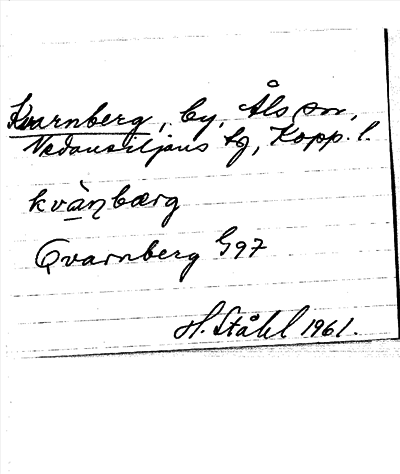 Kvarnberg, by, Åls sn,
Nedansiljans tg, Kopp. l.
kvàṇbærg
Qvarnberg G97
H. Ståhl 1961.